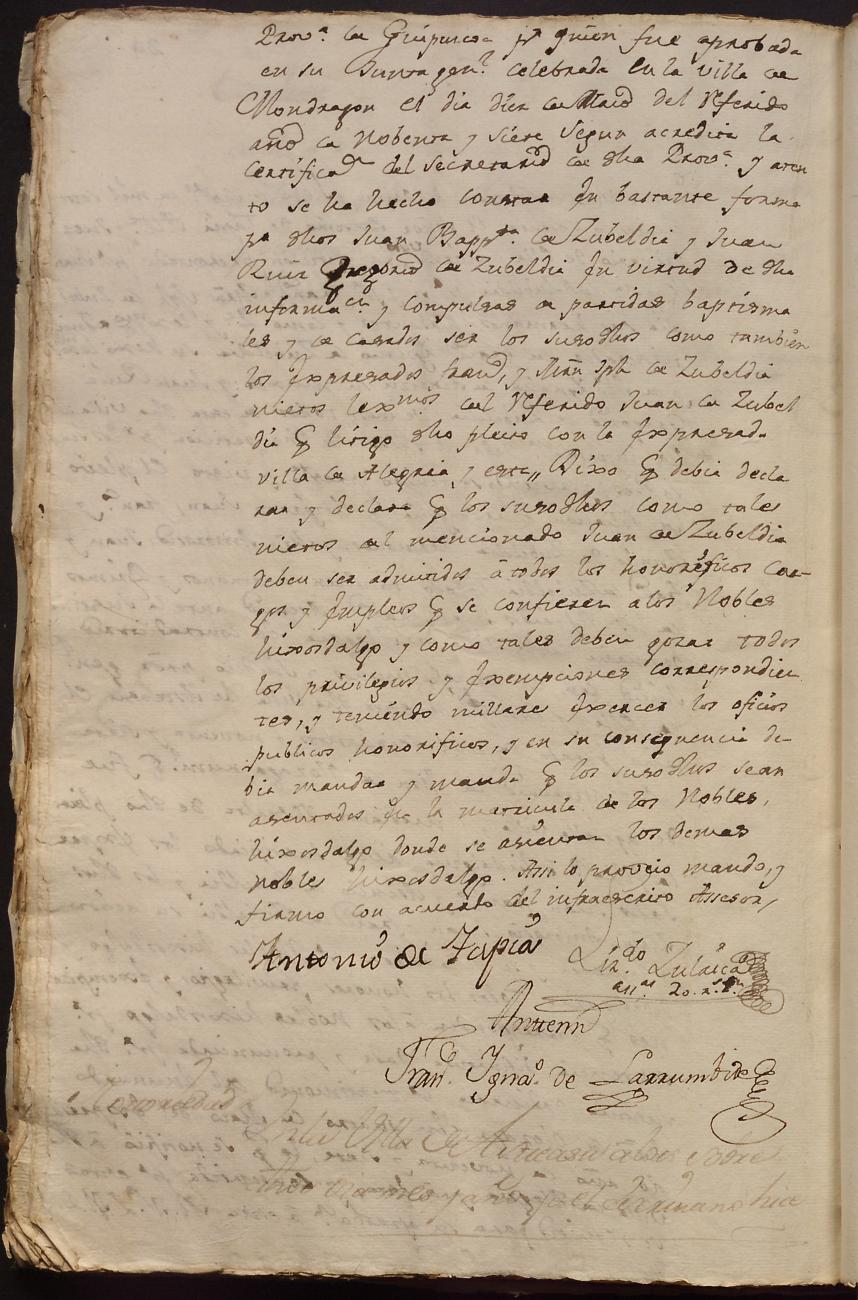 Prov.ª de Guipuzcoa pr quien fue aprobada
en su Junta gen.l celebrada en la villa de
Mondragon el dia diez de Maio del referido
año de nobenta y siete segun acredita la
certificaon del secretario de dha Prov.ª y aten
to se ha hecho constar en bastante forma
pr dhos Juan Bapp.ta de Zubeldia y Juan
Gregorio de Zubeldia en virtud de dha
informacin y compulsas de partidas baptisma
les y de casados ser los susodhos como tambien
los expresados franco, y Mrn Jph de Zubeldia
nietos lexmos del referido Juan de Zubel
dia q litigo dho pleito con la expresada
villa de Alegria, y esta,, Dixo q debia decla
rar y declara q los susodhos como tales
nietos del mencionado Juan de Zubeldia
deben ser admitidos à todos los honorificos car-
gos y empleos q se confieren a los Nobles
hixosdalgo y como tales deben gozar todos
los privilegios y exempciones correspondien
tes, y teniendo millares exercer los oficios
publicos honorificos, y en su consequencia de-
bia mandar y manda q los susodhos sean
asentados en la matricula de los Nobles,
hixosdalgo donde se asientan los demas
nobles hixosdalgo. Assi lo proveio mando, y
firmo con acuerdo del infraescrito Assesor,
Antonio de Tapia Liz.do Zulaica
Antemi
Fran.co Ignao. de Larrumbide
En la Villa de